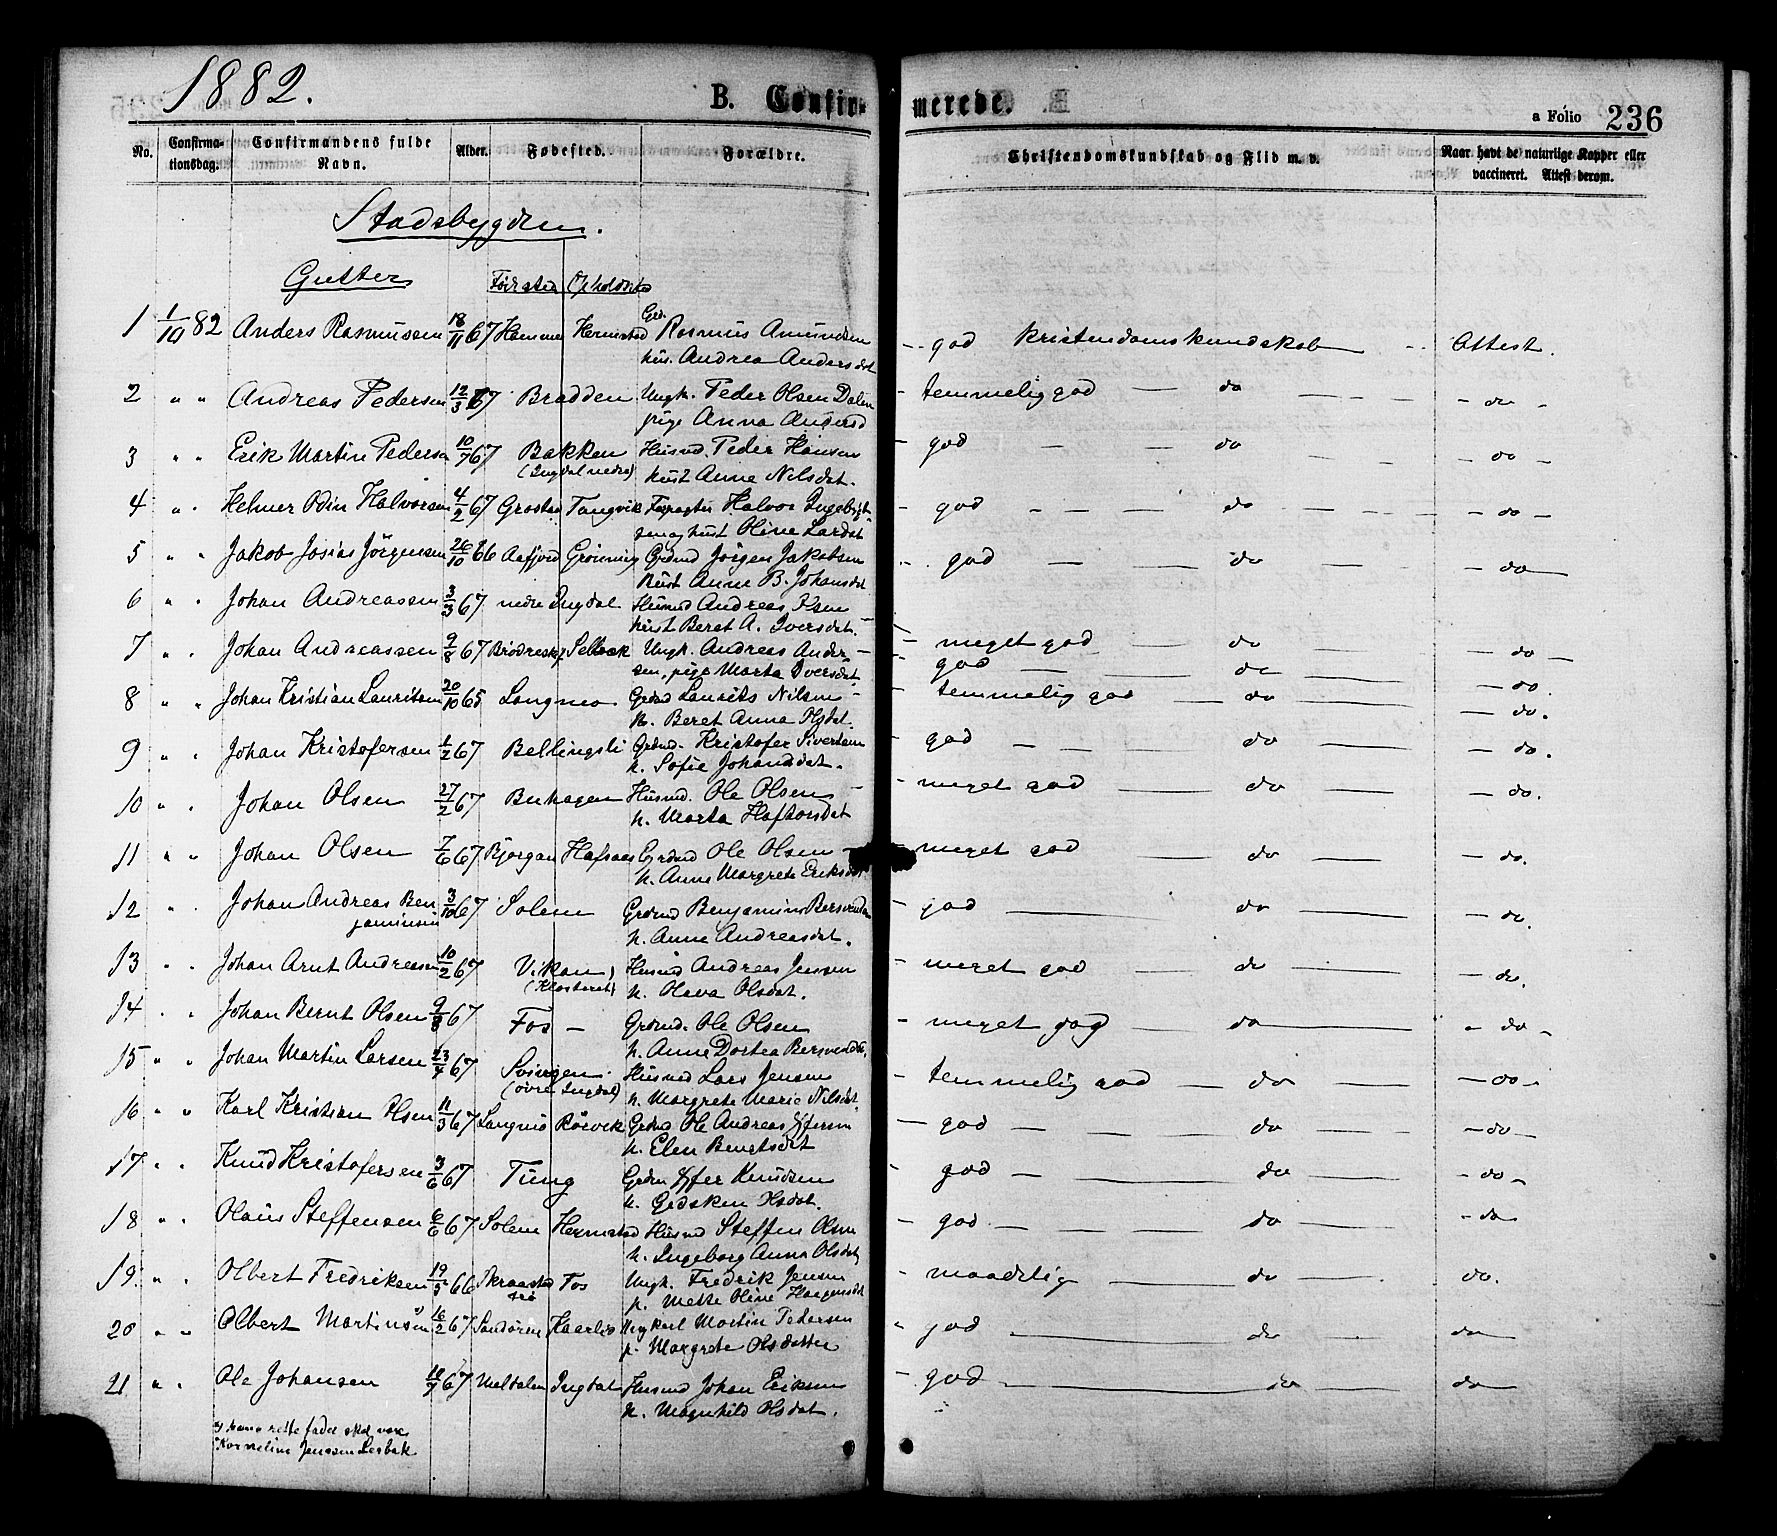 1882.
B. Confir-
merede.
a Folio 236
No. Confirma-tionsdag. Confirmandens fulde Navn. Alder. Fødested. Forældre. Christendomskundskab og Flid m. v. Naar havt de naturlige Kopper eller vaccineret. Attest derom.
Stadsbygden.
Gutter Opholdst
1 1/10 82 Anders Rasmussen 18/11 67 Hammer Hermstad Rasmus Amundsen - god kristendomskundskab - Attest.
hus. Andrea Andersdat
2 " " Andreas Pedersen 12/3 67 Bradden Ungk. Peder Olsen Dalen - temmelig god — do - do -
pige Anna Andersd
3 " " Erik Martin Pedersen 10/7 67 Bakken Husmd. Peder Hansen - god - do - do -
(Ingdal nedre) hust Anne Nilsdat.
4 " " Helmer Odin Halvorsen 4/2 67 Grøstad Tungvik Forpagter Halvor Ingebrigt- - god - do - do -
sen og hust Oline Larsdat
5 " " Jakob Josias Jörgensen 26/10 66 Aafjord Grönning Grdmd Jörgen Jakobsen - god - do - do —
Hust Anne B. Johansdat
6 " " Johan Andreassen 3/3 67 nedre Ingdal Husmd Andreas Olsen
hust Beret A. Iversdat. - meget god — do - do -
7 " " Johan Andreassen 9/8 67 Selbæk Ungk. Andreas Ander- - god — do - do.
sen, pige Marta Iversdat
8 " " Johan Kristian Lauritsen 20/10 65 Langmo Grdmd Laurits Nilsen - temmelig god — do - do.
h. Beret Anna Olsdat.
9 " " Johan Kristofersen 1/2 67 Bellingsli Grdmd. Kristofer Sivertsen - god - do - do.
h. Sofie Johansdat.
10 " " Johan Olsen 27/2 67 Berhagen Husmd. Ole Olsen - meget god — do — do.
h. Marta Haftorsdat
11 " " Johan Olsen 7/6 67 Bjørgan Hafsaas Grdmd Ole Olsen - meget god — do — do.
h. Anne Margrete Eriksdat
12 " Johan Andreas Ben 3/10 67 Solem Grdmd Benjamin Bersvendsen - god — do — do.
jaminsen h. Anne Andreasdat.
13 " " Johan Arnt Andreasen 10/2 67 Vikan Husmd Andreas Jensen - meget god — do — do.
(Klosteret) h. Oleva Olsdat.
14 " " Johan Bernt Olsen 9/8 67 Fos - Grdmd. Ole Olsen - meget god — do — do -
h. Anne Dortea Bersvendsd.
15 " " Johan Martin Larsen 23/4 67 Svingen Husmd Lars Jensen - temmelig god — do — do -
(övre Ingdal) h. Margrete Marie Nilsdat
16 " " Karl Kristian Olsen 11/3 67 Langmo Rösvik Grdmd Ole Andreas Effersen - god - do — do -
h. Elen Bengtsdat
17 " " Knud Kristofersen 3/6 67 Tung Grdm Effer Knudsen - god - do — do -
h. Gedsken Olsdat.
18 " " Olaus Steffensen 6/6 67 Solem Hermstad Husmd Steffen Olsen - god. - do — do
h. Ingeborg Anna Olsdat
19. " " Olbert Fredriksen 19/5 66 Fos Ungk. Fredrik Jensen - maadelig — do — do.
p. Mette Oline Haagensdat
20 " " Olbert Martinsen x) 16/2 67 Haarlis Ungkarl Martin Pedersen - god — do — do
p. Margrete Olsdatter
21 " " Ole Johansen 18/7 67 Meldalen Ingdal Husmd Johan Eriksen - god — do — do
h. Magnhild Olsdat.
x) hans rette fader skal være
Kornelius Jenssen Lerbak